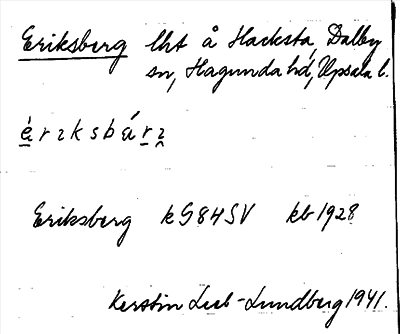 Eriksberg lht å Hacksta, Dalby
sn, Hagunda hd, Upsala l.
è̱rıksbá̱rı̭
Eriksberg kG84SV kb 1928
Kerstin Leel-Lundberg 1941.